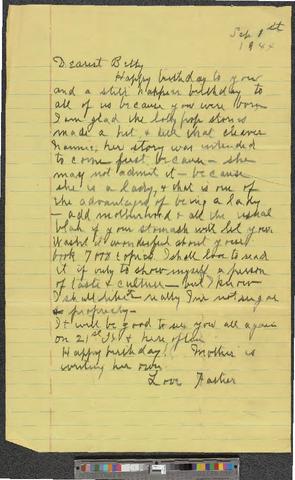 Sep 1st
1944
Dearest Betty
Happy birthday to you
and a still happier birthday to
all of us because you were born
I am glad the lollypop stories
made a hit, & tell that clever
Nannie, her story was intended
to come first because - she
may not admit it - because
she is a lady, & that is one of
the advantages of being a lady
- add motherhood & all the usual
blah if your stomach will let you.
Wasn't it wonderful about your
book 7000 copies. I shall love to read
it if only to show myself a person
of taste & culture - but I know
I shall like it really I'm not
It will be good to see you all again
on 21st & here
Happy birthday! Mother is
writing her own
Love Father